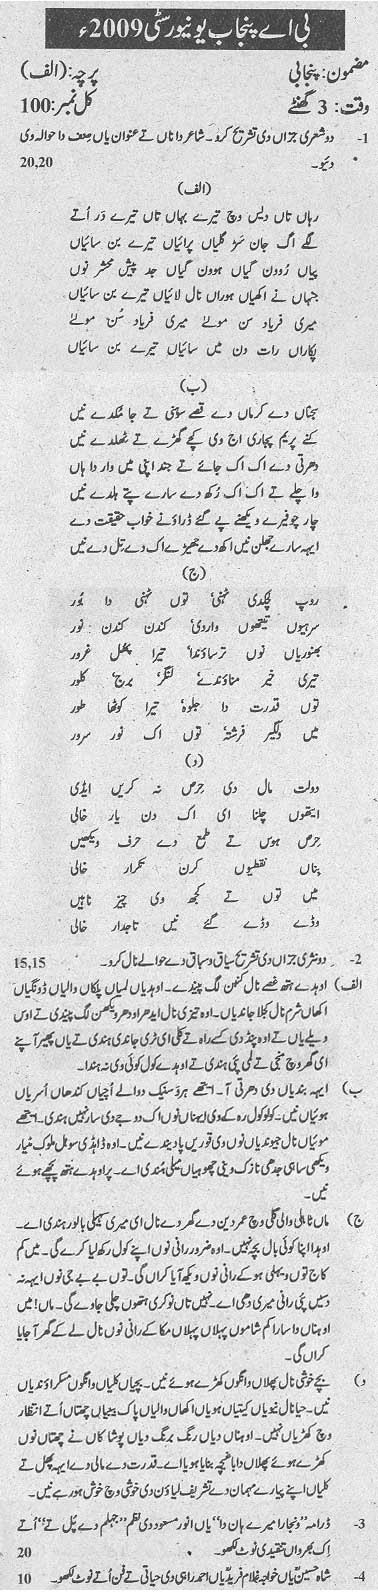 بی اے پنجاب یونیورسٹی 2009ء
مضمون: پنجابی پرچہ: (الف)
وقت: 3 گھنٹے کل نمبر: 100
1- دو شعری جزاں دی تشریح کرو۔ شاعر دا ناں تے عنوان یاں صنف دا حوالہ وی
دیو۔ 20,20
(الف)
رہاں تاں دیس وچ تیرے بہاں تاں تیرے در اُتے
لگے اگ جان سڑ گلیاں پرائیاں تیرے بن سائیاں
پیاں رُوون گیاں ہوون گیاں جد پیش محشر نوں
جنہاں نے اکھیاں ہوراں نال لائیاں تیرے بن سائیاں
میری فریاد سن مولےٰ میری فریاد سُن مولےٰ
پکاراں رات دن میں سائیاں تیرے بن سائیاں
(ب)
سجناں دے کرماں دے قصے سوہنی تے جا مکدے نیں
کنے پریم پجاری اج وی کچے گھڑے تے ٹھلدے نیں
دھرتی دے اک اک جائے تے جند اپنی میں وار دا ہاں
وا چلے تے اک اک رُکھ دے سارے پتے ہلدے نیں
چار چوفیرے ویکھنے پے گئے ڈراؤنے خواب حقیقت دے
ایہہ سارے جھلن نیں اکھ دے جیہڑے اک دے تِل دے نیں
(ج)
روپ لچکدی ٹہنی توں ٹہنی دا بُور
سرہیوں تیتھوں واردی کندن کندن نور
بھنوریاں نوں ترساؤندا تیرا پھل غرور
تیری خیر مناؤندے لنگر برج کلور
توں قدرت دا جلوہ تیرا کوٹھا طور
میں دلگیر فرشتہ توں اک نور سرور
(د)
دولت مال دی حرص نہ کریں ایڈی
ایتھوں چلنا ای اک دن یار خالی
حرص ہوس تے طمع دے حرف ویکھیں
بناں نقطیوں کرن تکرار خالی
میں توں تے کجھ وی چیز ناہیں
وڈے وڈے گئے نیں تاجدار خالی
2- دو نثری جزاں دی تشریح سیاق و سباق دے حوالے نال کرو۔ 15,15
الف) اوہدے ہتھ غصے نال کنبن لگ پیندے۔ اوہدیاں لمیاں پلکاں والیاں ڈونگیاں
اکھاں شرم نال کجلا جاندیاں۔ اوہ تیزی نال ایدھر اودھر ویکھن لگ پیندی تے اوس
ویلے یاں تے اوہ پنڈ دی کسے راہ تے کلی ای ٹری جاندی ہندی تے یاں پھیر آپنے
ای گھر وچ منجی تے لمی پئی ہندی تے اوہدے کول کوئی وی نہ ہندا۔
ب) ایہہ بندیاں دی دھرتی آ۔ ایتھے ہر وسنیک دوالے اُچیاں کندھاں اُسریاں
ہوئیاں نیں۔ کولو کول رہ کے وی ایہناں نوں اک دوجے دی سار نہیں ہندی۔ ایتھے
موئیاں نال جیوندیاں نوں وی قوریں پا دیندے نیں۔ اوہ ڈاہڈی سوہل ملوک مٹیار
ویکھی ساہی جدھی نازک وینی چوہیاں میلی ہندی اے۔ پر اوہدے ہتھ پچھے ہوئے
نیں۔
ج) ماں ٹاہلی والی گلی وچ عمردین دے گھر دے نال ای میری سہیلی بالور ہندی اے۔
اوہدا اپنا کوئی بال بچہ نہیں۔ اوہ ضرور رانی نوں اپنے کول رکھ لیا کرے گی۔ میں کم
کاج توں ویہلی ہو کے رانی نوں ویکھ آیا کراں گی۔ توں بے بے جی نوں ایہہ نہ
دسیں پئی رانی میری دھی اے۔ نہیں تاں نوکری ہتھوں چلی جاوے گی۔ ماں! میں
اوہناں دا سارا کم شاموں پہلاں پہلاں مکا کے رانی نوں نال لے کے گھر آ جایا
کراں گی۔
د) بچے خوشی نال پھلاں وانگوں کھڑے ہوئے نیں۔ بچیاں کلیاں وانگوں مسکراؤندیاں
نیں۔ حیا نال نیویاں کیتیاں ہویاں اکھاں والیاں پاک بیبیاں چھتاں اُتے انتظار
وچ کھڑیاں نہیں۔ اوہناں دیاں رنگ برنگ دیاں پوشاکاں نے چھتاں نوں
کھڑے ہوئے پھلاں دا باغیچہ بنایا ہویا اے۔ قدرت دے مالی دے ایہہ پھل تے
کلیاں اپنے پیارے مہمان دے تشریف لیاؤن دی خوشی وچ خوش ہو رہے نیں۔
3- ڈرامہ ”ونجارا میرے ہان دا“ یاں انور مسعود دی نظم ”جہلم دے پُل تے“ اُتے
اک بھرواں تنقیدی نوٹ لکھو۔ 20
4- شاہ حسینؒ یاں خواجہ غلام فریدؒ یاں احمد راہی دی حیاتی تے فن اُتے نوٹ لکھو۔ 10